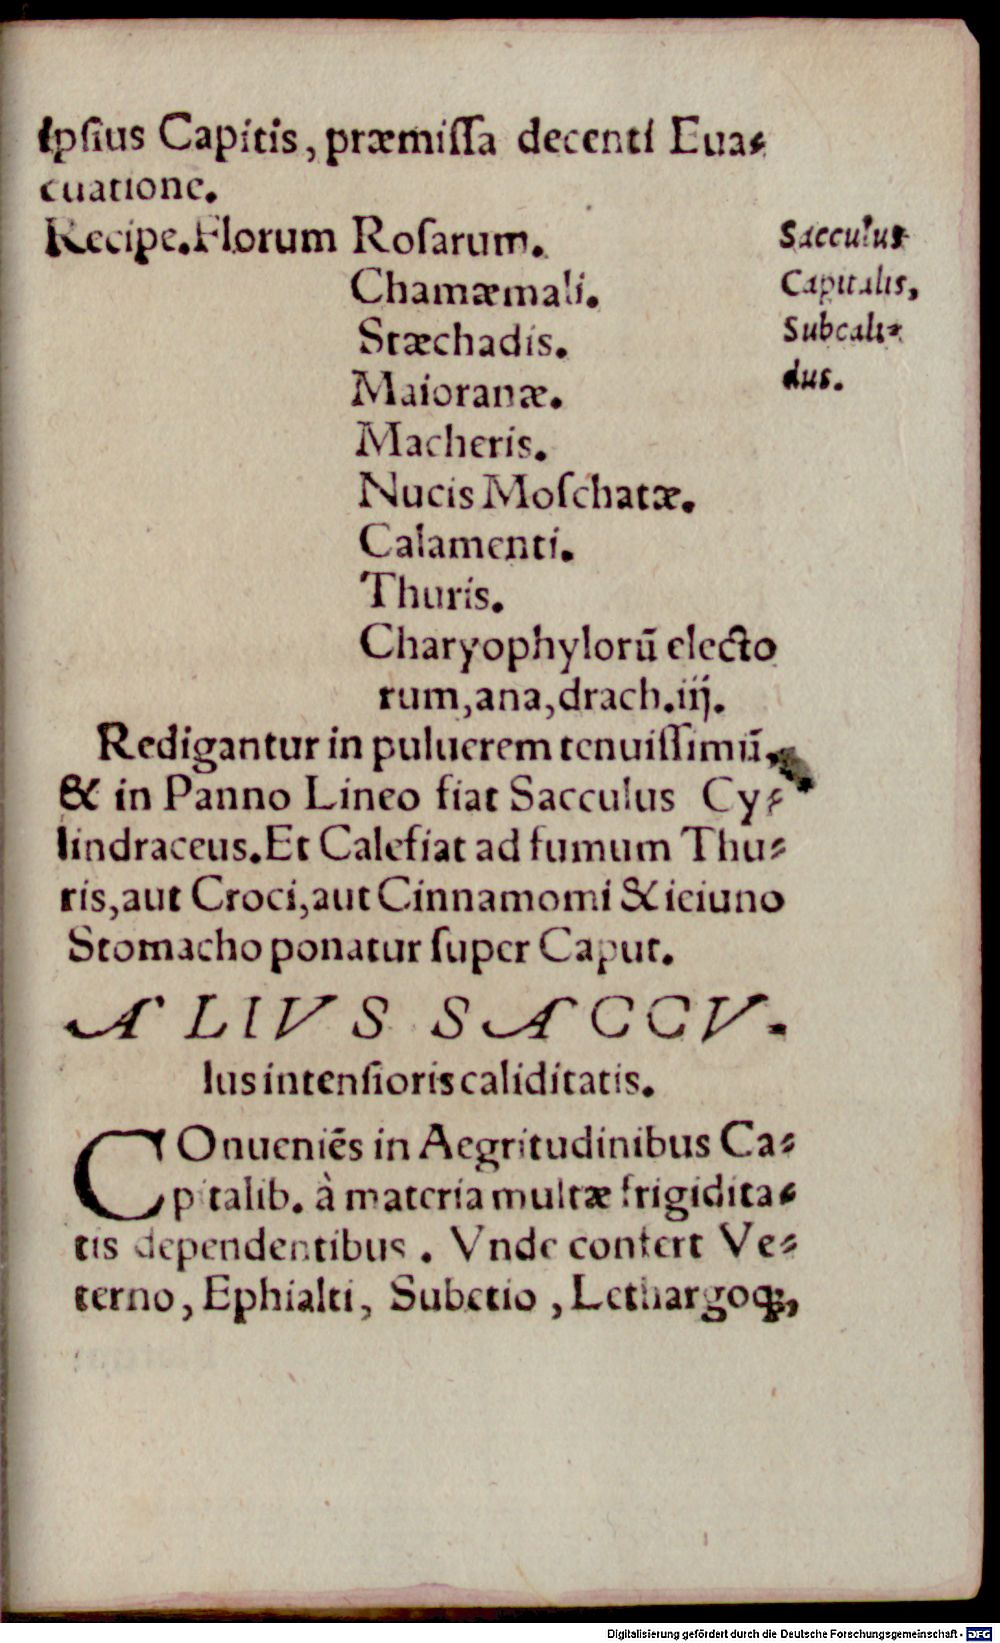 ipſius Capitis, præmiſſa decenti Eua⸗
cuatione.
Recipe. Florum Roſarum.
Chamæmali.
Stæchadis.
Maioranæ.
Macheris.
Nucis Moſchatæ.
Calamenti.
Thuris.
Charyophylorū electo
rum, ana, drach. iij.
Sacculus
Capitalis,
Subcali⸗
dus.
Redigantur in puluerem tenuiſſimū,
& in Panno Lineo fiat Sacculus Cy⸗
lindraceus. Et Calefiat ad fumum Thu⸗
ris, aut Croci, aut Cinnamomi & ieiuno
Stomacho ponatur ſuper Caput.
ALIVS SACCV.
lus intenſioris caliditatis.
COnueniēs in Aegritudinibus Ca⸗
pitalib. à materia multæ frigidita⸗
tis dependentibus. Vnde confert Ve⸗
terno, Ephialti, Subetio, Lethargoqꝫ,
Digitalisierung gefördert durch die Deutsche Forschungsgemeinschaft - DFG